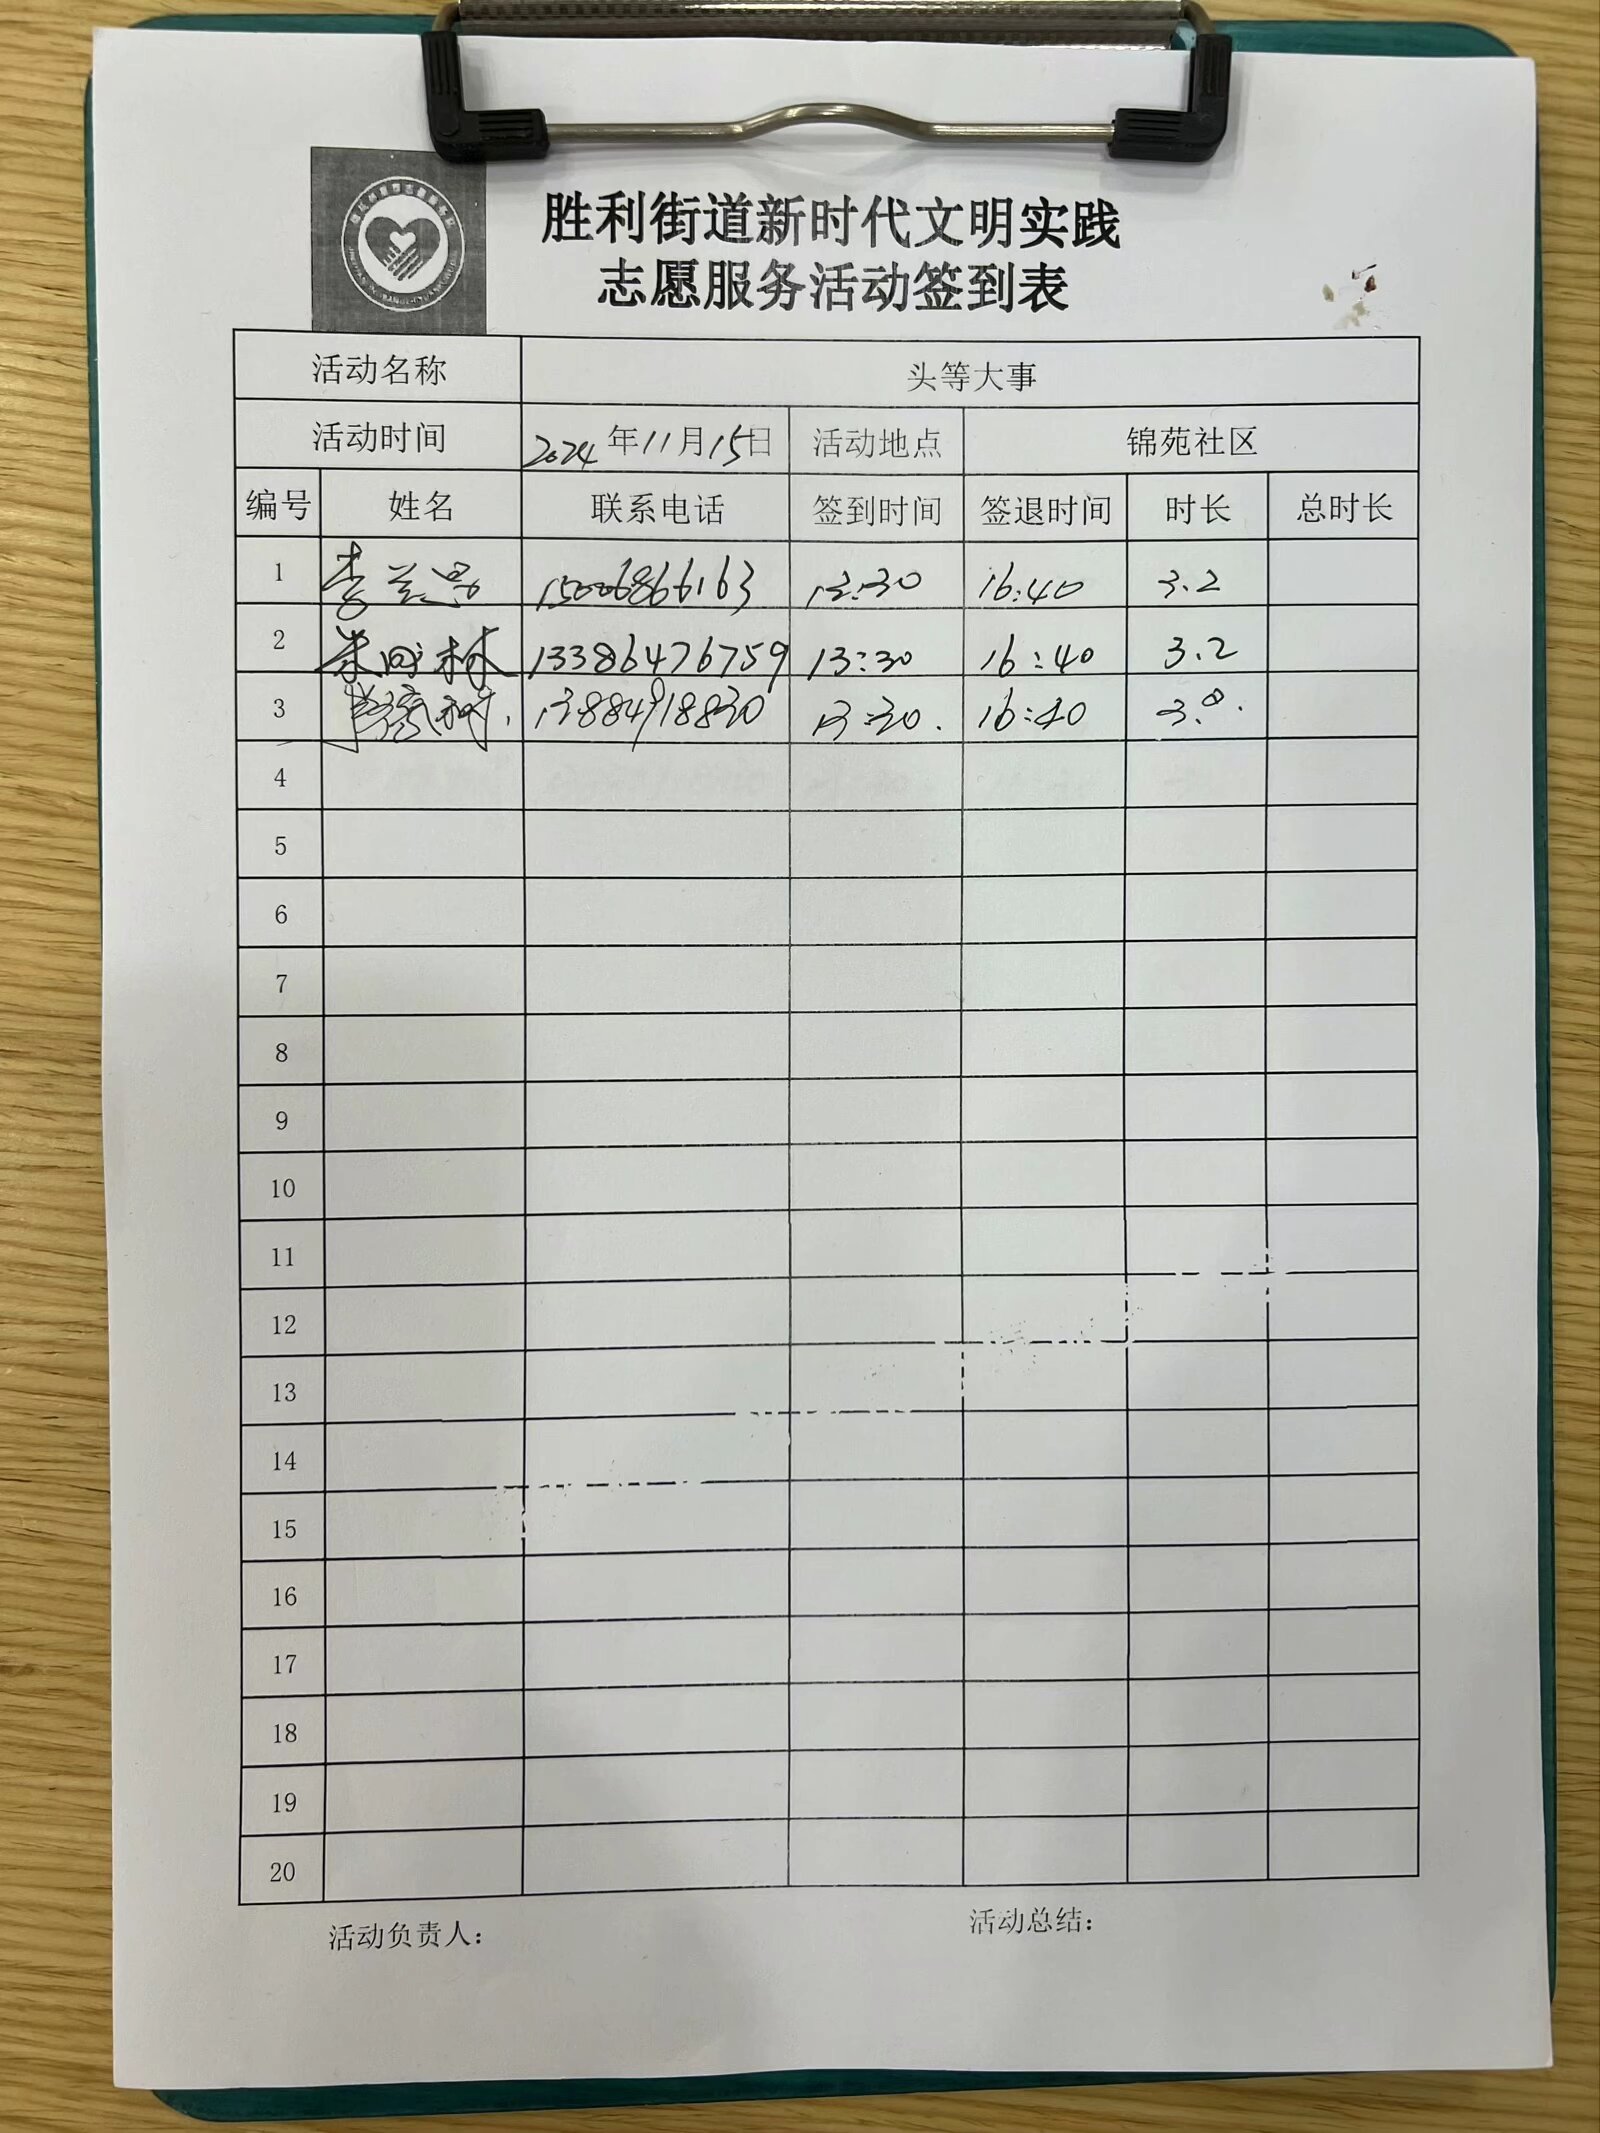 胜利街道新时代文明实践
志愿服务活动签到表
活动名称 头等大事
活动时间 2024年11月15日 活动地点 锦苑社区
编号 姓名 联系电话 签到时间 签退时间 时长 总时长
1 李兰 15006866163 13:30 16:40 3.2
2 朱 林 13386476759 13:30 16:40 3.2
3 13884918830 13:30. 16:40
4
5
6
7
8
9
10
11
12
13
14
15
16
17
18
19
20
活动负责人: 活动总结: